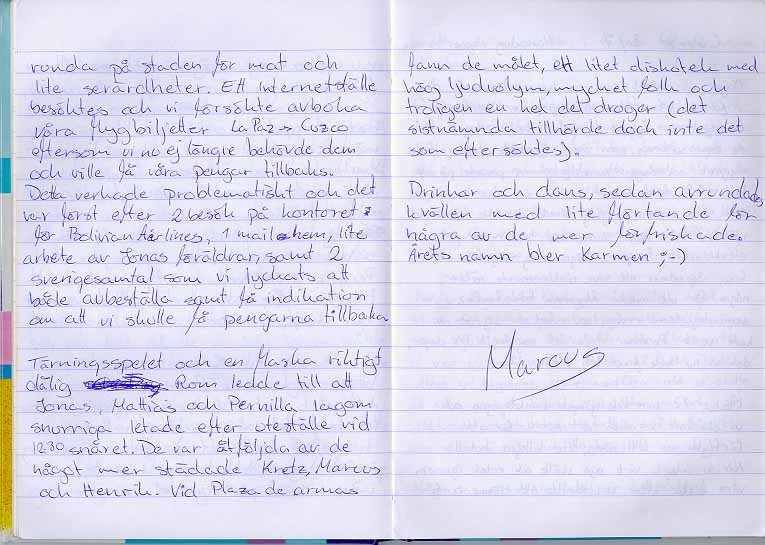 runda på staden för mat och
lite servärdheter. Ett internetställe
besöktes och vi försökte avboka
våra flygbiljetter LaPaz → Cuzco
eftersom vi nu ej längre behövde dem
och ville få våra pengar tillbaks.
Detta verkade problematiskt och det
var först efter 2 besök på kontoret
för Bolivian Airlines, 1 mail hem, lite
arbete av Jonas föräldrar, samt 2
sverigesamtal som vi lyckats att
både avbeställa samt få indikation
om att vi skulle få pengarna tillbaka
Tärningsspelet och en flaska riktigt
dålig Rom ledde till att
Jonas, Mattias och Pernilla lagom
snurriga letade efter uteställe vid
12.30 snåret. De var åtföljda av de
något mer städade Kretz, Marcus
och Henrik. Vid Plaza de armas
fann de målet, ett litet diskotek med
hög ljudvolym, mycket folk och
troligen en hel del droger (det
sistnämnda tillhörde dock inte det
som eftersöktes).
Drinkar och dans, sedan avrundades
kvällen med lite flörtande för
några av de mer förfriskade.
Årets namn bler Karmen ;-)
Marcus